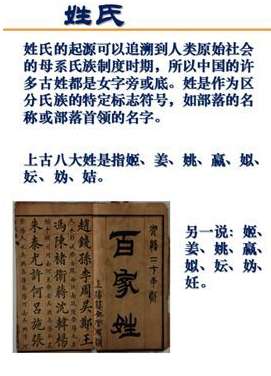 姓氏
姓氏的起源可以追溯到人类原始社会
的母系氏族制度时期，所以中国的许
多古姓都是女字旁或底。姓是作为区
分氏族的特定标志符号，如部落的名
称或部落首领的名字。
上古八大姓是指姬、姜、姚、嬴、姒、
妘、妫、姞。
另一说：姬、
姜、姚、嬴、
姒、妘、妫、
妊。
百家姓
趙錢孫李周吳鄭王
馮陳褚衛蔣沈韓楊
朱秦尤許何呂施張